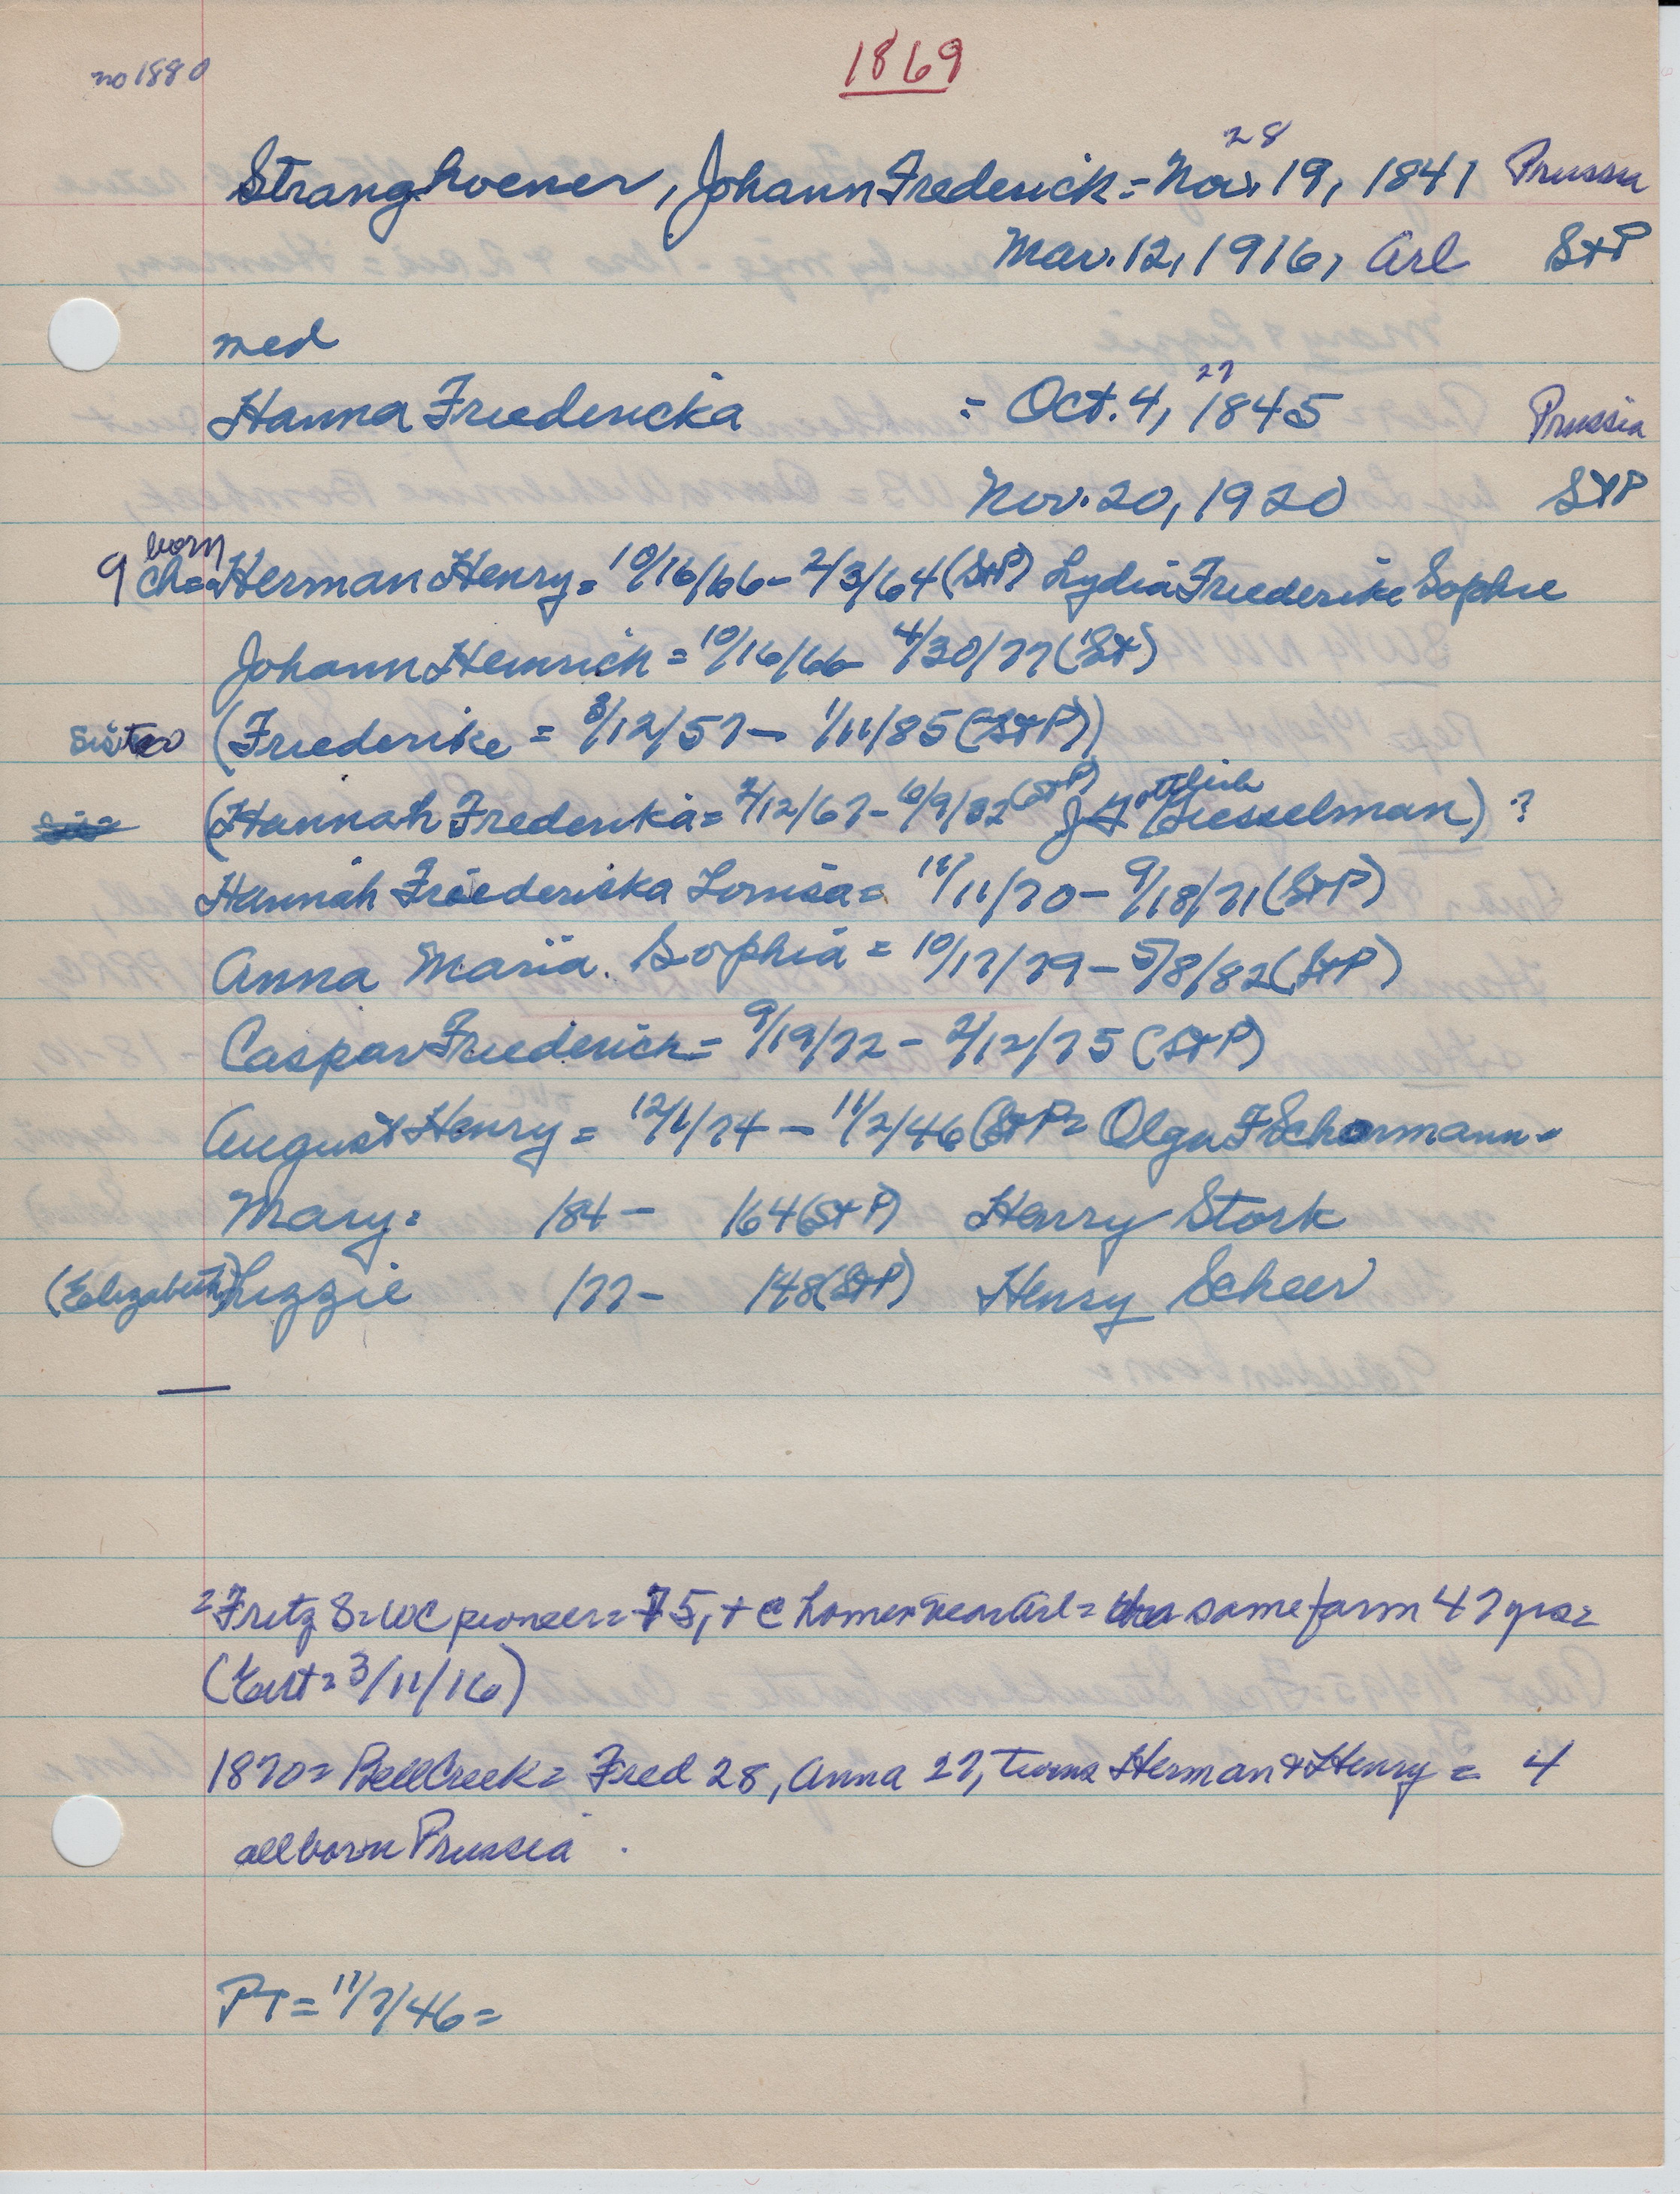 no 1880
1869
28
Stranghoener, Johann Frederick = Nov. 19, 1841 Prussia
Mar. 12, 1916, Arl St P
med
27
Hanna Friedericka = Oct. 4, 1845 Prussia
Nov. 20, 1920 St P
born
9 ch = Herman Henry = 10/16/66 - 2/3/64 (St P) Lydia Friederike Sophie
Johann Heinrich = 10/16/66 4/30/77 (St)
Sister (Friederike = 3/12/57 - 1/11/85 (St P))
(Hannah Frederika = 2/12/67 - 6/9/82 (St P) J Gottlieb Giesselman) ?
Hannah Friedericka Louisa = 11/11/70 - 9/18/71 (St P)
Anna Maria Sophia = 10/17/79 - 5/8/82 (St P)
Caspar Friederich = 9/19/72 - 2/12/75 (St P)
August Henry = 12/1/74 - 11/2/46 (St P = Olga F Schormann =
Mary = 184 - 164 (St P) Henry Stork
(Elizabeth) Lizzie 177 - 148 (St P) Henry Scheer
2 Fritz S = WC pioneer = 75, + @ home near Arl = same farm 47 yrs =
( = 3/11/16)
1870 = Bell Creek = Fred 28, Anna 27, Twins Herman & Henry = 4
all born Prussia
PT = 11/7/46 =